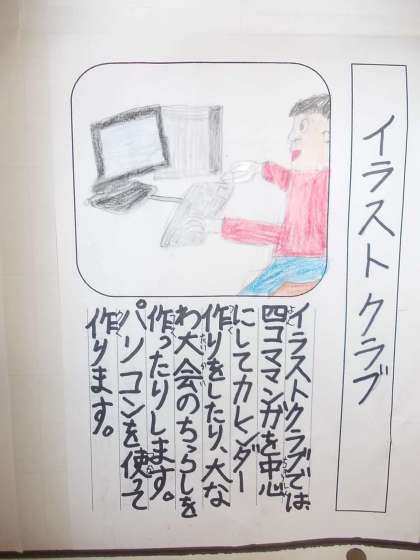 イラストクラブ
イラストクラブでは、
四コママンガを中心
にしてカレンダー
作りをしたり、大な
わ大会のちらしを
作ったりします。
パソコンを使って
作ります。